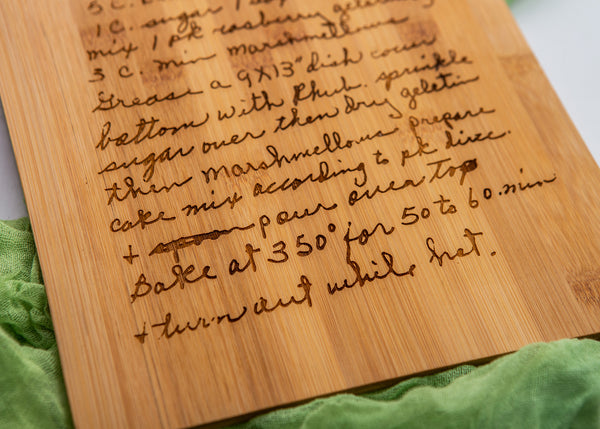 1 C. sugar 1
mix 1 pk rasberry gelatin
3 C. min marshmellows
Grease a 9x13" dish cover
bottom with Rhub. sprinkle
sugar over then dry gelatin
then marshmellows prepare
cake mix according to pk direc.
+ pour over top
Bake at 350° for 50 to 60 min
+ turn out while hot.